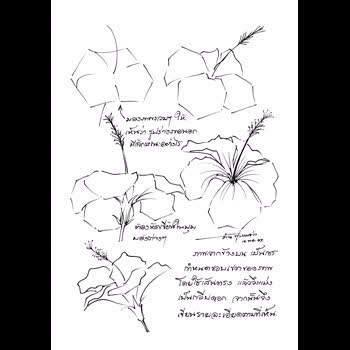 มองภาพรวมๆ ให้
เห็นว่า รูปร่างของดอก
มีลักษณะอย่างไร
ต้องหัดเขียนในมุม
มองต่างๆ
ภาพจากข้างบน เป็นการ
กำหนดขอบเขตของภาพ
โดยใช้เส้นตรง แล้วจึงแบ่ง
เป็นกลีบดอก จากนั้นจึง
เขียนรายละเอียดตามที่เห็น